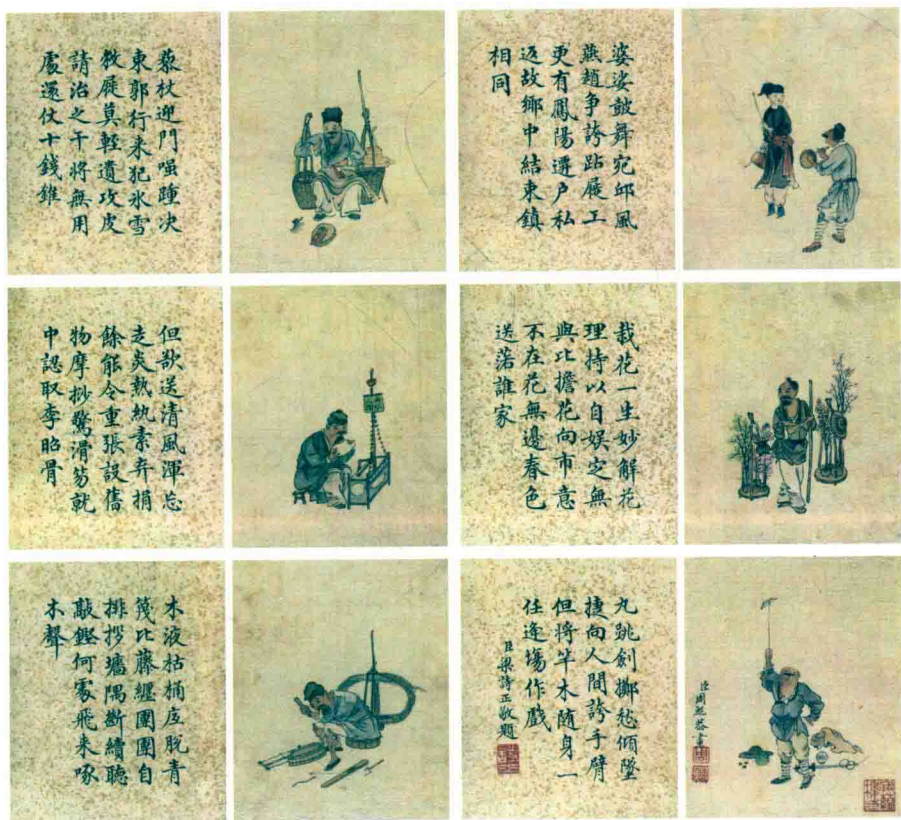 藜杖迎門嗤踵决
東郭行来犯氷雪
敝屣莫輕遺攻皮
請治之干將無用
處還仗十錢錐
婆娑鼓舞宛邱風
燕趙争誇跕屣工
更有鳳陽遷户私
返故鄉中結束鎮
相同
但欲送清風渾忘
走炎熱紈素弃捐
餘能令重張設舊
物摩挲驚滑笏就
中認取季昭骨
栽花一生妙解花
理持以自娱定無
與比擔花向市意
不在花無邊春色
送落誰家
木液枯桶底脱青
篾比藤纏團團自
排拶墻隅斷續聽
敲鏗何處飛来啄
木聲
丸跳劍擲愁傾墜
捷向人間誇手臂
但將竿木隨身一
任逢場作戲
臣梁詩正敬題
臣周鯤恭畫